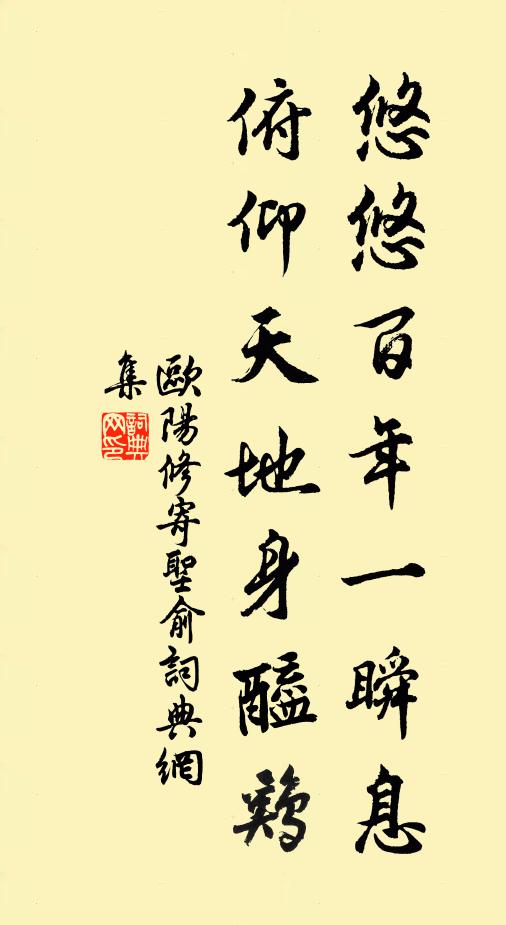 悠悠百年一瞬息
俯仰天地身醯鷄
歐陽修寄聖俞詞典網
集
詞典
网印